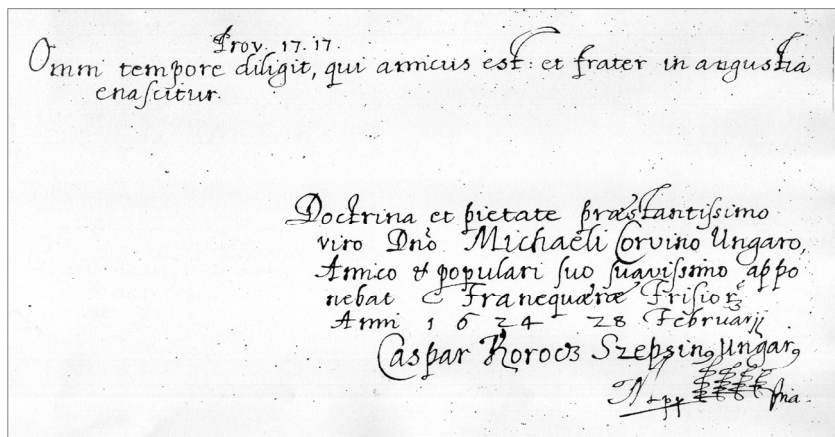 Prov. 17. 17.
Omni tempore diligit, qui amicus est: et frater in angustia
enascitur.
Doctrina et pietate præstantissimo
viro Dno Michaeli Corvino Ungaro,
Amico & populari suo suavissimo appo
nebat Franequæræ Frisior
Anni 1624 28 Februarij
Caspar Korocz Szepsin9 Ungar9